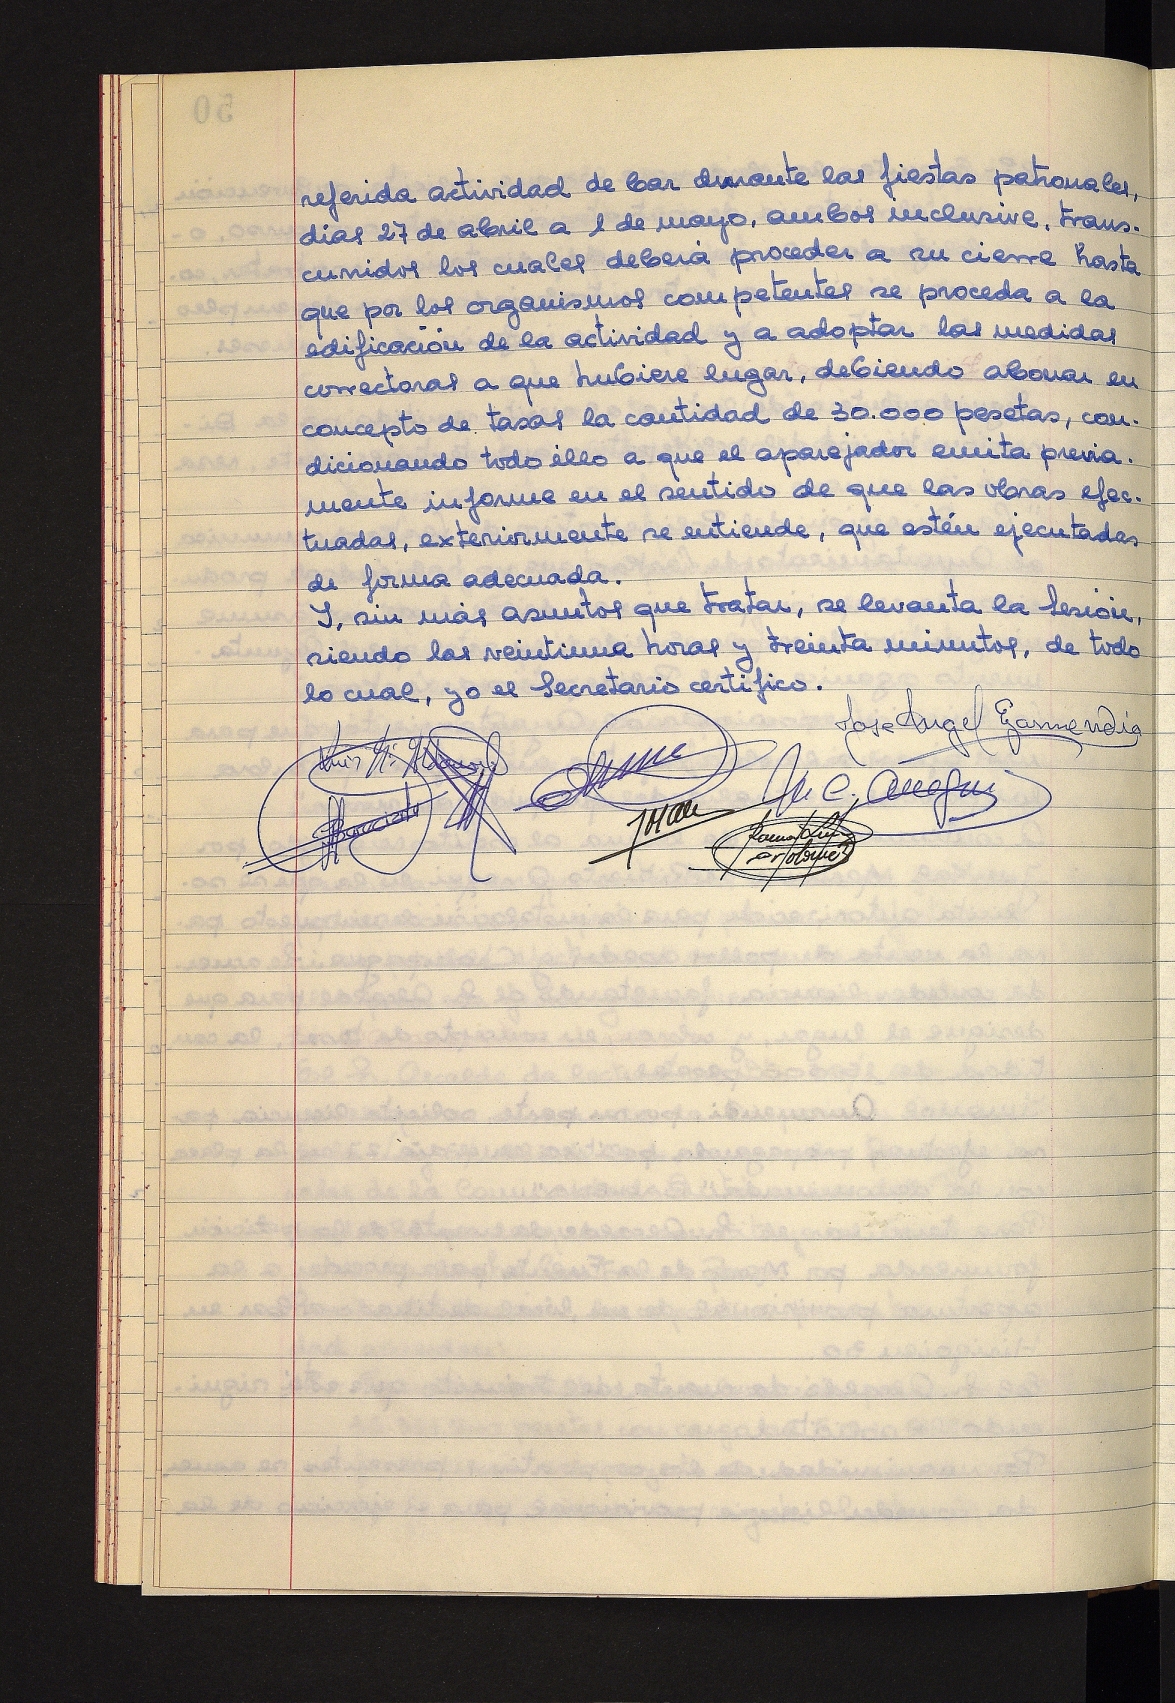 referida actividad de bar durante las fiestas patronales,
días 27 de abril a 1 de mayo, ambos inclusive, trans-
curridos los cuales deberá proceder a su cierre hasta
que por los organismos competentes se proceda a la
edificación de la actividad y a adoptar las medidas
correctoras a que hubiere lugar, debiendo abonar en
concepto de tasas la cantidad de 30.000 pesetas, con-
dicionando todo ello a que el aparejador emita previa-
mente informe en el sentido de que las obras efec-
tuadas, exteriormente se entiende, que estén ejecutadas
de forma adecuada.
Y, sin más asuntos que tratar, se levanta la Sesión,
siendo las veintiuna horas y treinta minutos, de todo
lo cual, yo el Secretario certifico.
Jose Angel Garmendia